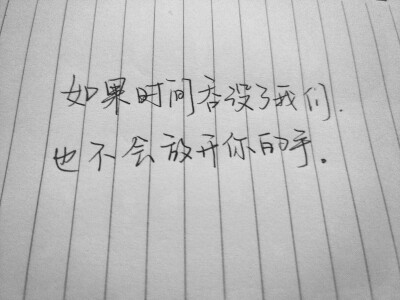 如果时间吞没了我们.
也不会放开你的手。